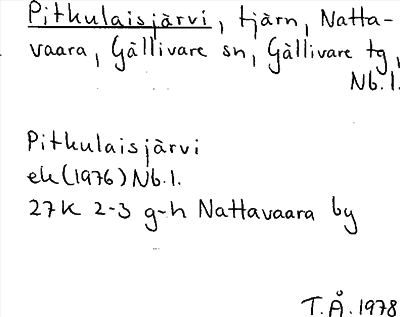 Pitkulaisjärvi, tjärn, Natta-
vaara, Gällivare sn, Gällivare tg,
Nb.l.
Pitkulaisjärvi
ek (1976) Nb.l.
27K 2-3 g-h Nattavaara by
T.Å. 1978